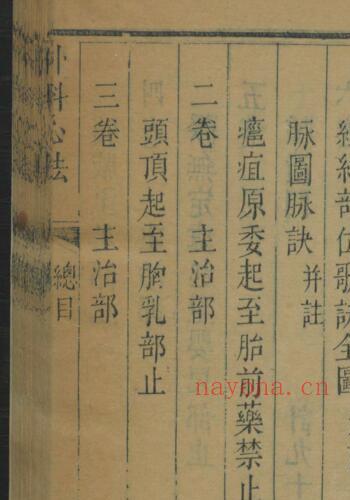 經絡部位歌訣全圖
脉圖脉訣 并註
癰疽原委起至胎前藥禁止
二卷 主治部
頭頂起至胸乳部止
三卷 主治部
外科心法 總目
nayona.cn